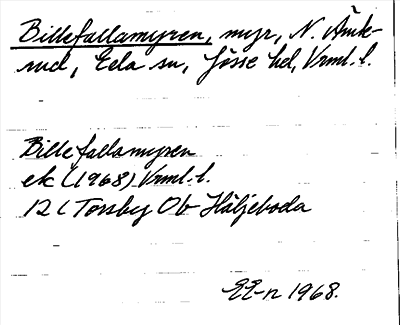 Billefallamyren, myr, N. Åmk-
rud, Eda sn, Jösse hd, Vrml. l.
Billefallamyren
ek (1968) Vrml. l.
12 C Torsby Ob Häljeboda
EE-n 1968.